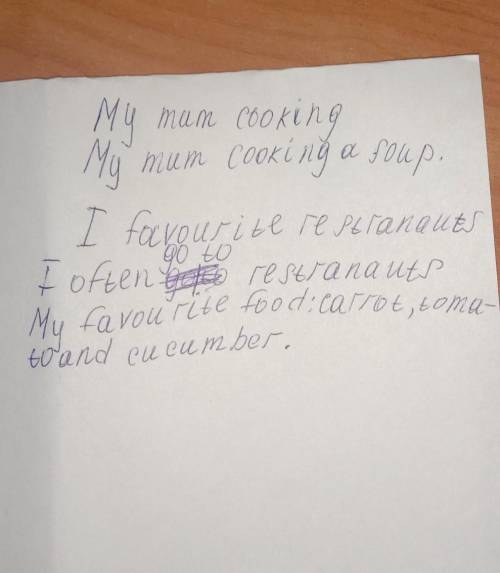 My mum cooking
My mum cooking a soup.
I favourite restranauts
I often go to restranauts
My favourite food: carrot, toma-
to and cucumber.